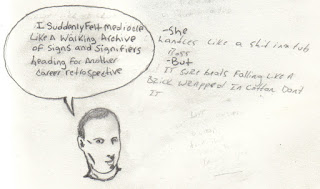 I Suddenly Felt Mediocre
Like A Walking Archive
of Signs and Signifiers
heading For Another
career retrospective
-She
Handles Like a shit in a tub
-But
It sure beats Falling Like A
Brick Wrapped In Cotton Dont
It